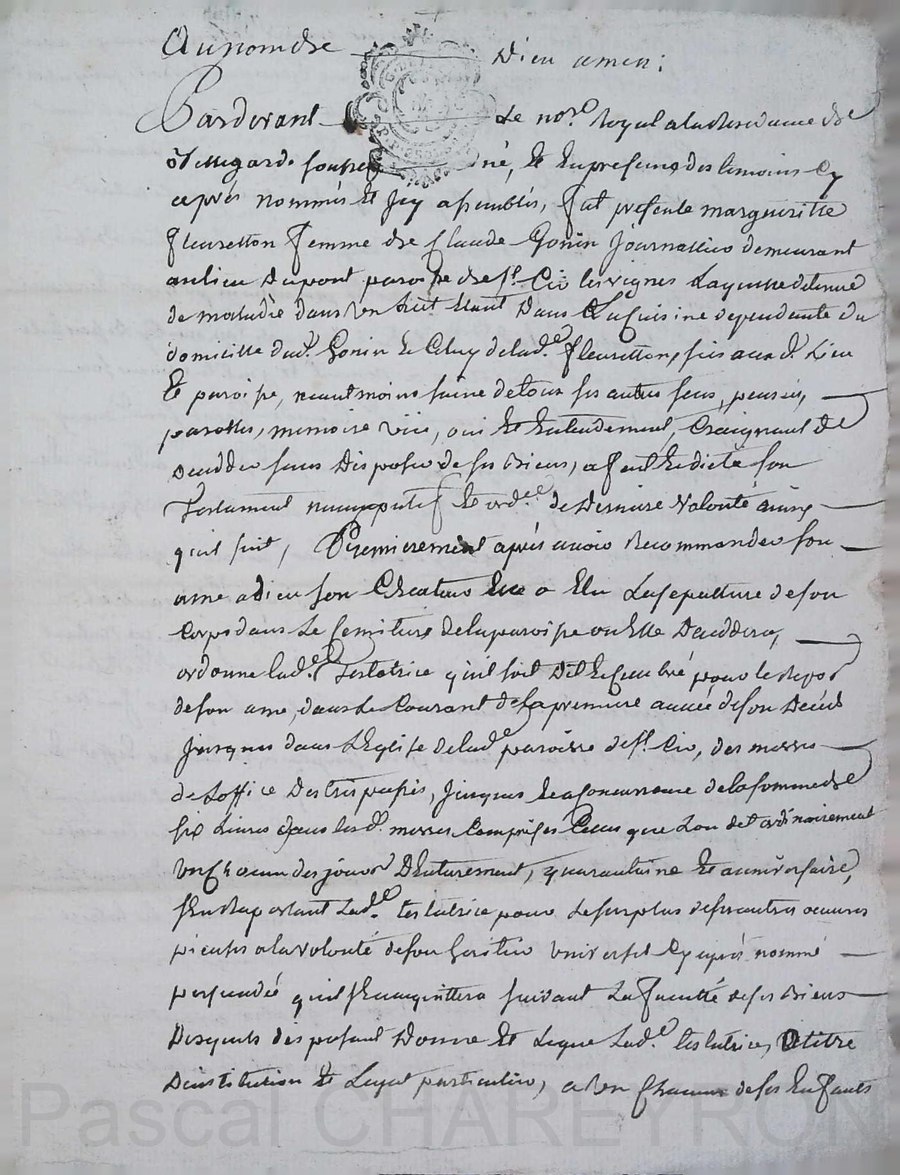 Au nom de Dieu amen;
Pardevant Le no.re Royal a la Residance de
soussigné, Et En presence des temoins Cy
après nommés Et Icy assemblés, fut presente margueritte
fleuretton femme de Claude Gonin Journallier demeurant
au lieu Dupont paroisse de St. Cir les vignes Laquelle detenue
de maladie dans un Lict Etant Dans La Cuisine dependante du
domicille dud. Gonin Et Celuy de lad.e fleuretton, sis aux d. Lieu
Et paroisse, neantmoins saine de tous ses autres sens, pensée,
parolles, memoire vüe, oui Et Entendement, Craignant de
Decedder sans Disposer de ses Biens, a fait Et dicté son
Testament nuncupatif Et ord.ce de Derniere Volonté ainsy
quil suit, Premierement après avoir Recommandé son
ame a Dieu son Createur Elle a Elu La sepulture de son
Corps dans Le Cemitiere de la paroisse ou Elle Deceddera,
ordonne lad.e Testatrice qu'il soit Dit Et Celebré pour le Repos
de son ame, dans Le Courant de la premiere année de son Décès
Jusques dans L'Eglise de lad.e paroisse de St. Cir, des messes
de Loffice Des trepassés, Jusques a La Concurrance de la somme de
six Livres dans les d. messes Comprises Celles que Lon dit ordinairement
un Chacun des jours D'Enterement, quarantaine Et anniversaire,
s'En Raportant Lad.e testatrice pour Le surplus de ses autres oeuvres
pieuses a la volonté de son heritier universel Cy après nommé
persuadée quil s'En acquittera suivant La faculté de ses Biens
Desquels disposant Donne Et Legue Lad.e testatrice, a titre
D'institution Et Legat particulier, a un Chacun de ses Enfants
Pascal CHAREYRON